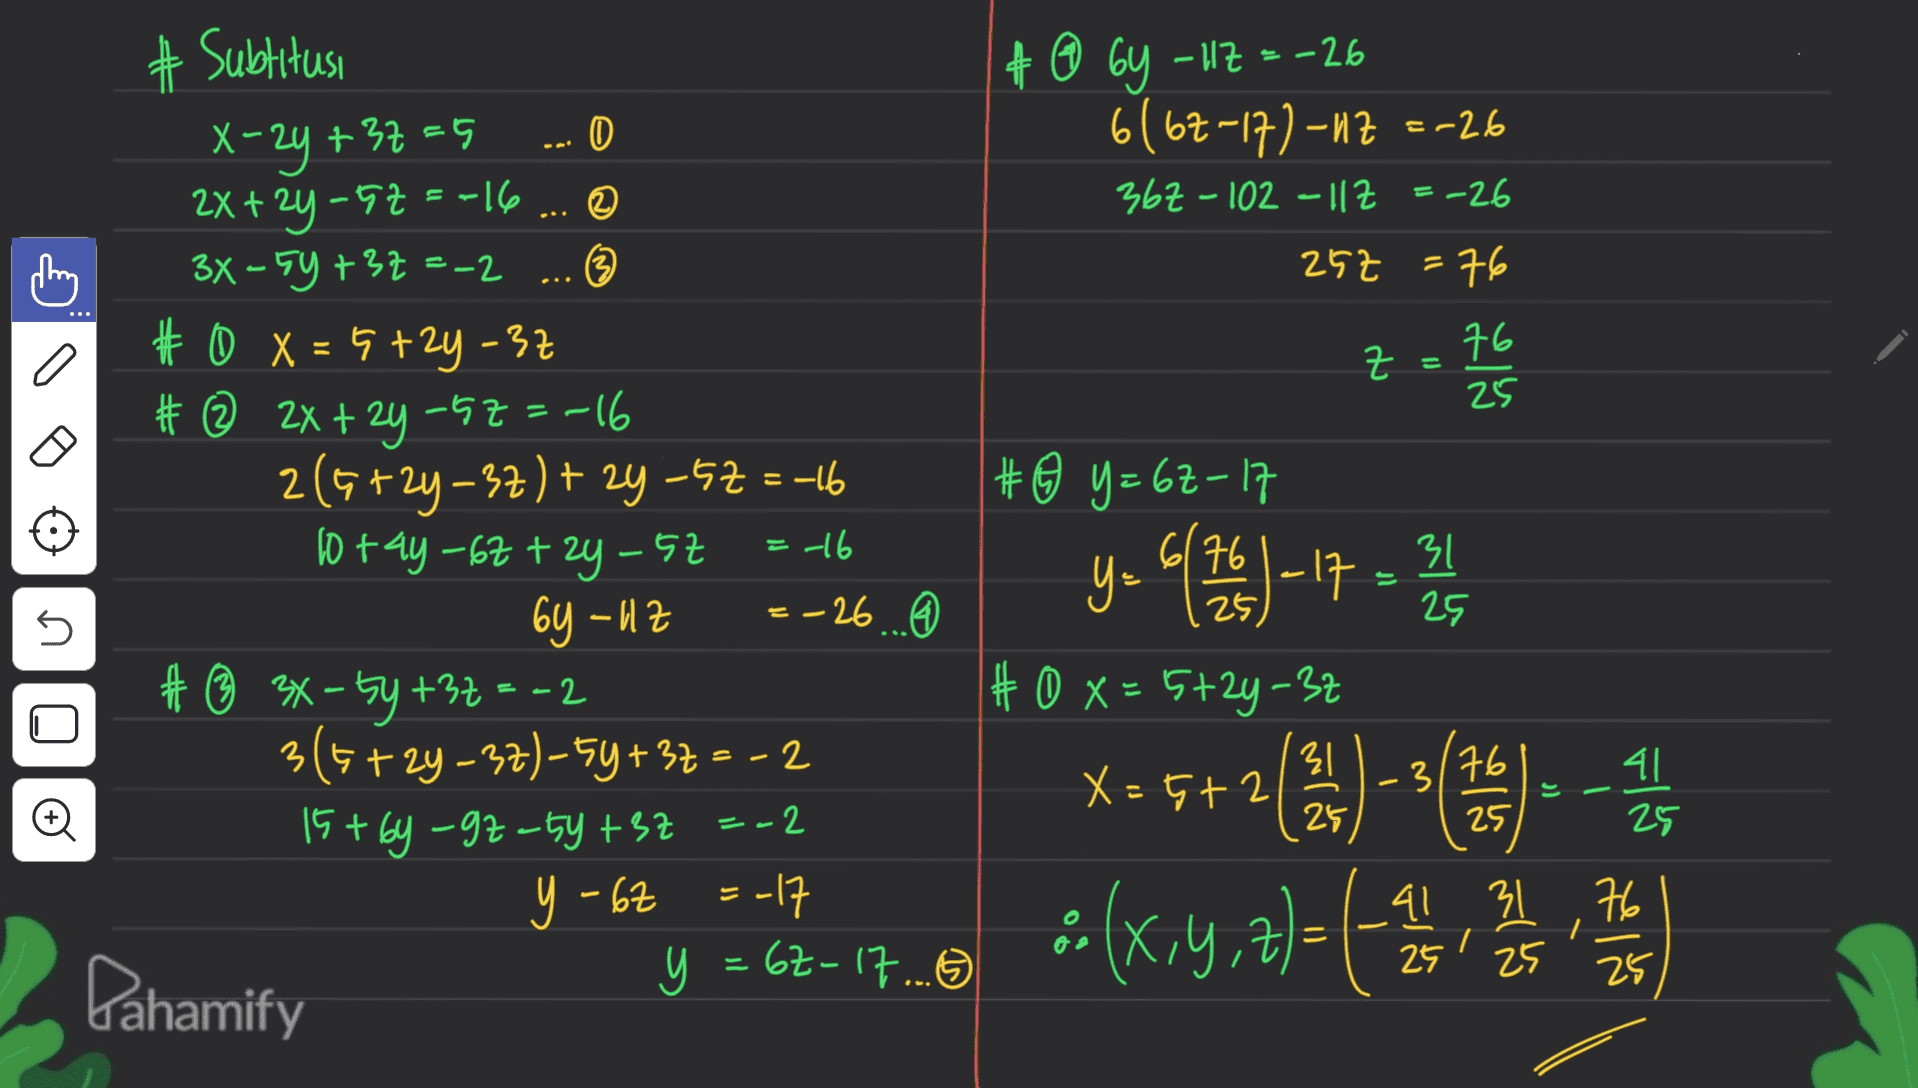 # Subtitusi
x - 2y + 3z = 5 ... ①
2x + 2y - 5z = -16 ... ②
3x - 5y + 3z = -2 ... ③
# ① x = 5 + 2y - 3z
# ② 2x + 2y - 5z = -16
2(5 + 2y - 3z) + 2y - 5z = -16
10 + 4y - 6z + 2y - 5z = -16
6y - 11z = -26 ... ④
# ③ 3x - 5y + 3z = -2
3(5 + 2y - 3z) - 5y + 3z = -2
15 + 6y - 9z - 5y + 3z = -2
y - 6z = -17
y = 6z - 17 ... ⑤
# ④ 6y - 11z = -26
6(6z - 17) - 11z = -26
36z - 102 - 11z = -26
25z = 76
z = 76/25
# ⑤ y = 6z - 17
y = 6(76/25) - 17 = 31/25
# ① x = 5 + 2y - 3z
x = 5 + 2(31/25) - 3(76/25) = -41/25
∴ (x, y, z) = (-41/25, 31/25, 76/25)
Pahamify